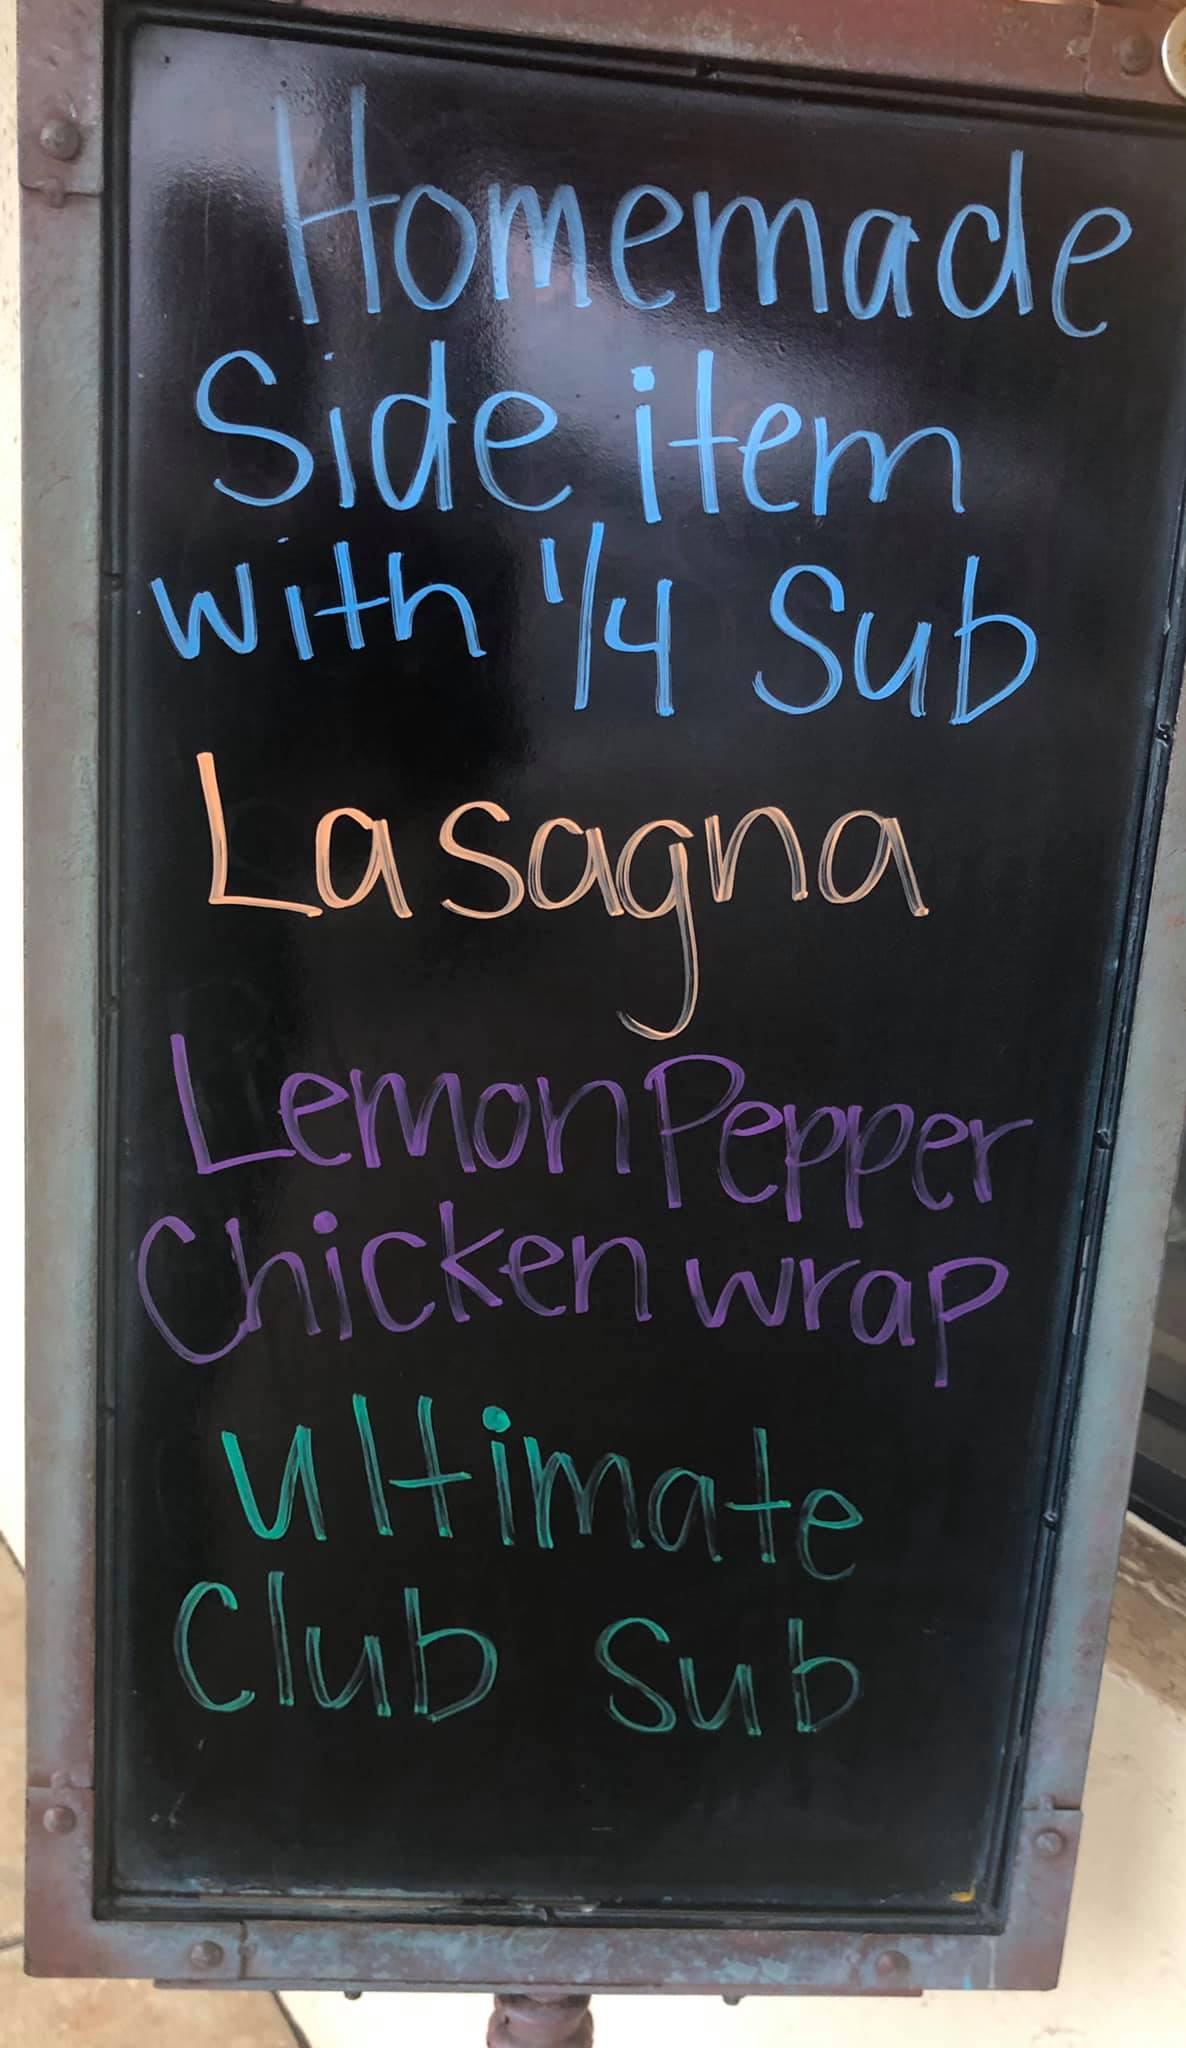 Homemade
Side item
with 1/4 Sub
Lasagna
Lemon Pepper
Chicken wrap
Ultimate
Club Sub